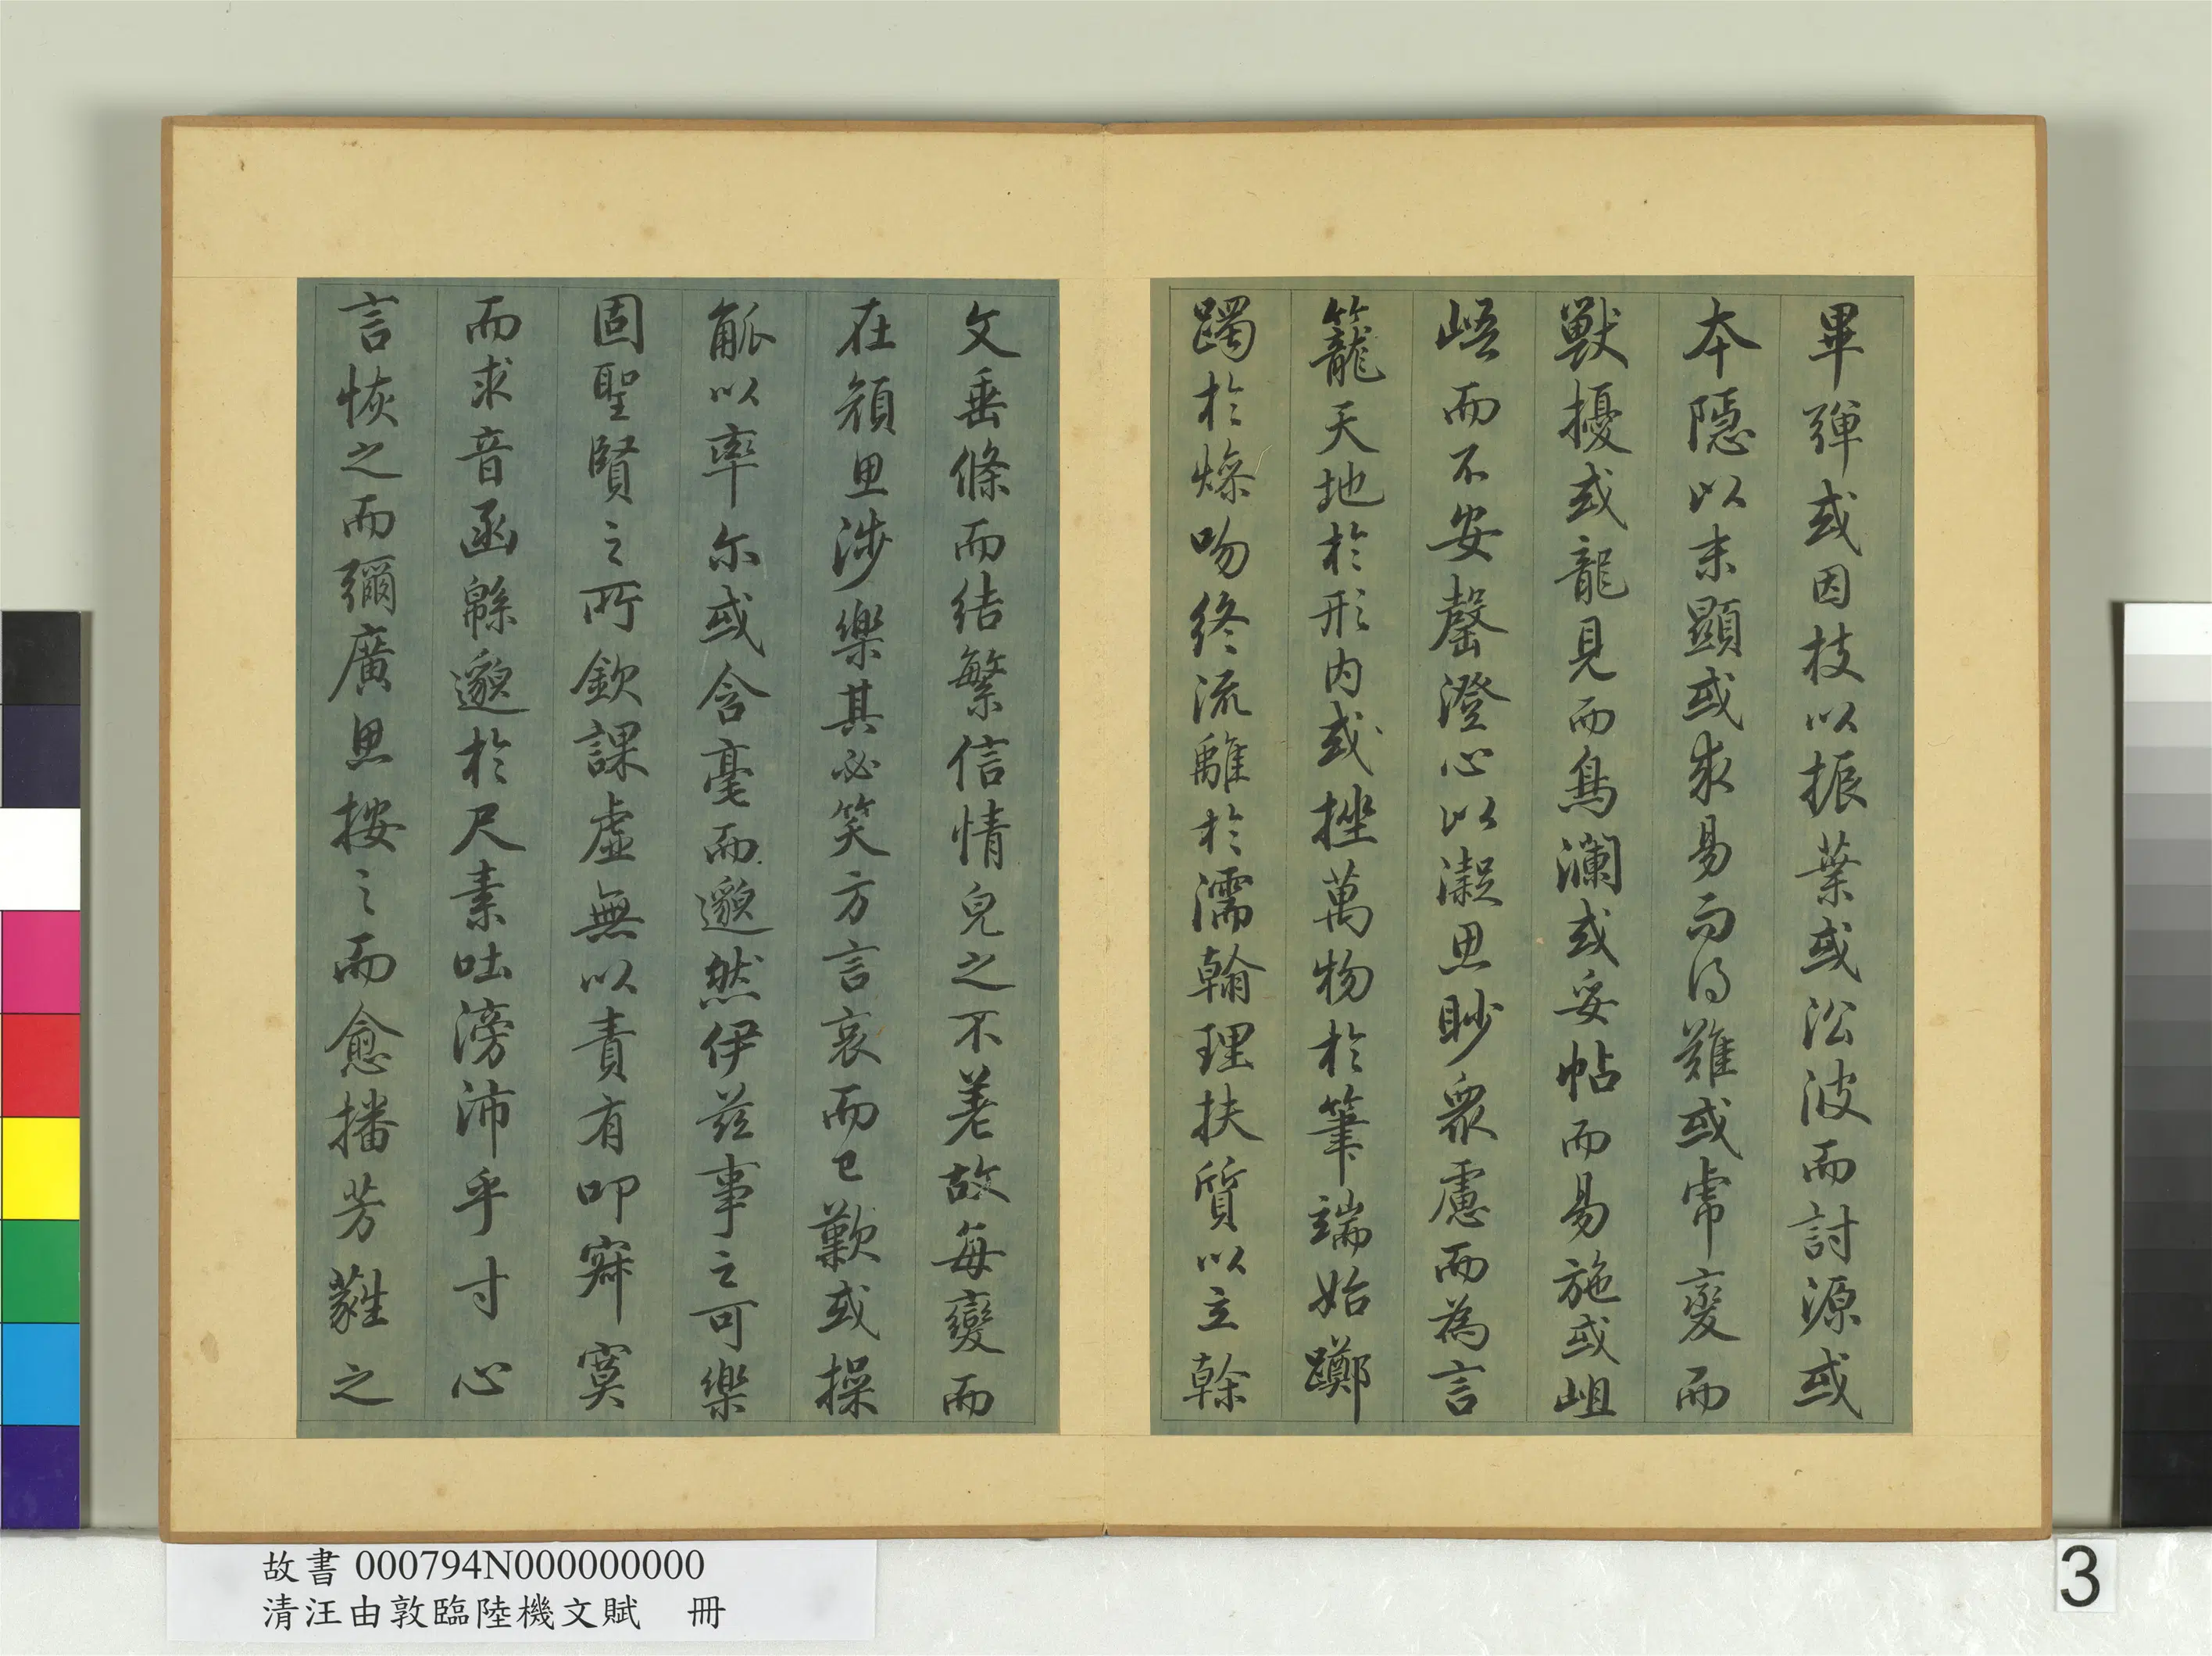 畢殫或因枝以振葉或㳂波而討源或
本隱以末顯或求易而得難或虎變而
獸擾或龍見而鳥瀾或妥帖而易施或岨
峿而不安罄澄心以凝思眇衆慮而為言
籠天地於形内或挫萬物於筆端始躑
躅於燥吻終流離於濡翰理扶質以立幹
文垂條而結繁信情皃之不差故每變而
在顔思涉樂其必笑方言哀而已歎或操
觚以率尓或含毫而邈然伊茲事之可樂
固聖賢之所欽課虛無以責有叩寂寞
而求音函緜邈於尺素吐滂沛乎寸心
言恢之而彌廣思按之而愈播芳蕤之
故書 000794N000000000
清汪由敦臨陸機文賦 冊
3